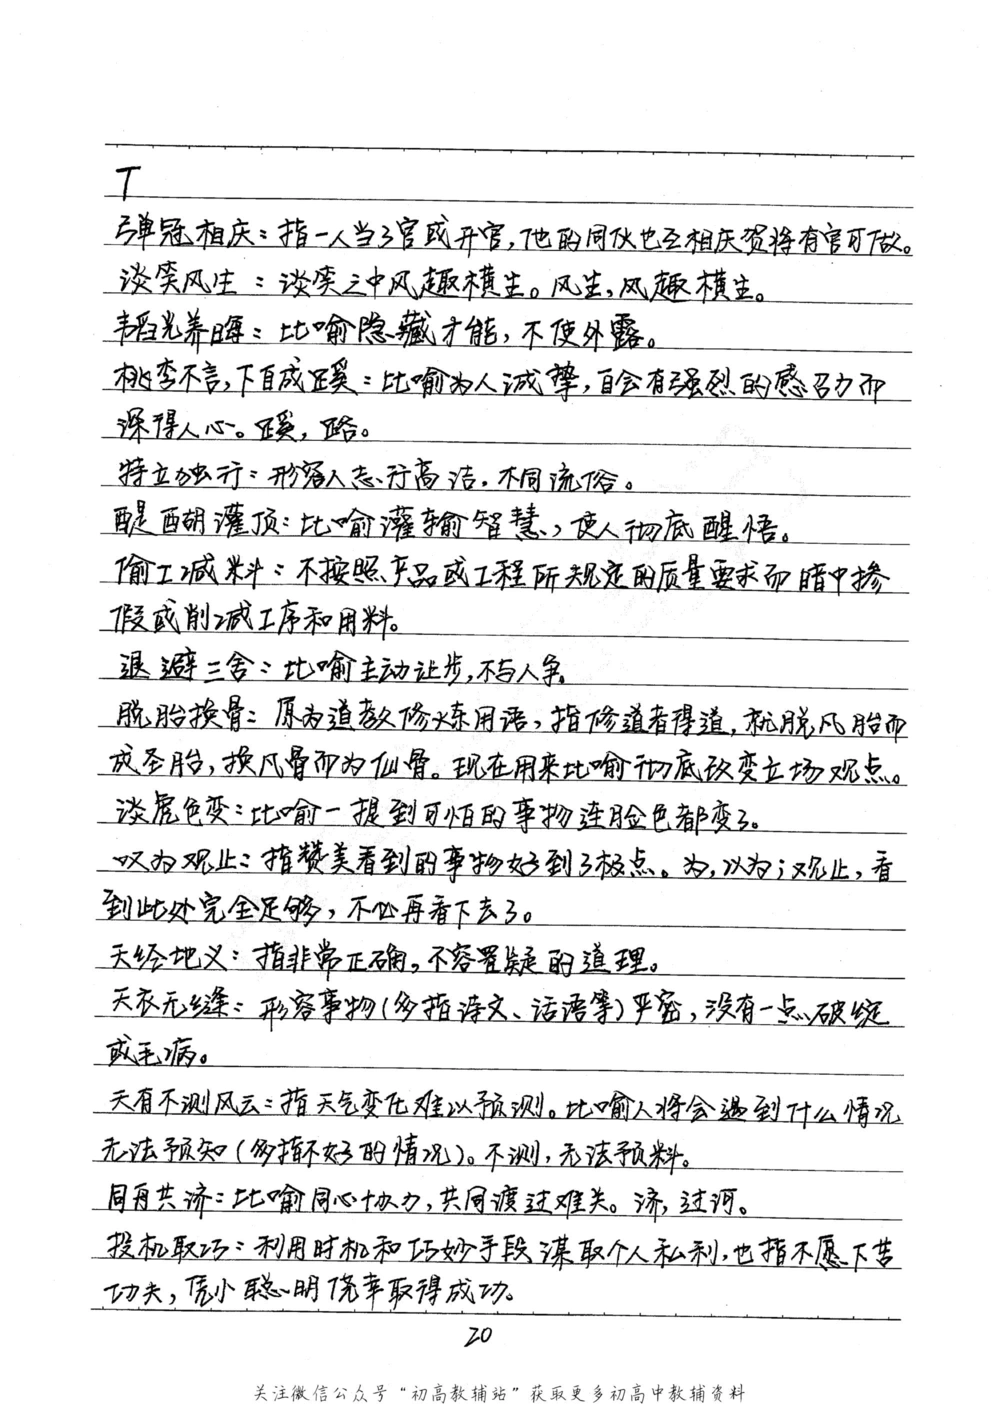 T
弹冠相庆：指一人当了官或升官，他的同伙也互相庆贺将有官可做。
谈笑风生：谈笑之中风趣横生。风生，风趣横生。
韬光养晦：比喻隐藏才能，不使外露。
桃李不言，下自成蹊：比喻为人诚挚，自会有强烈的感召力而
深得人心。蹊，路。
特立独行：形容人志行高洁，不同流俗。
醍醐灌顶：比喻灌输智慧，使人彻底醒悟。
偷工减料：不按照产品或工程所规定的质量要求而暗中掺
假或削减工序和用料。
退避三舍：比喻主动让步，不与人争。
脱胎换骨：原为道教修炼用语，指修道者得道，就脱凡胎而
成圣胎，换凡骨而为仙骨。现在用来比喻彻底改变立场观点。
谈虎色变：比喻一提到可怕的事物连脸色都变了。
叹为观止：指赞美看到的事物好到了极点。为，以为；观止，看
到此处完全足够，不必再看下去了。
天经地义：指非常正确，不容置疑的道理。
天衣无缝：形容事物（多指诗文、话语等）严密，没有一点破绽
或毛病。
天有不测风云：指天气变化难以预测。比喻人将会遇到什么情况
无法预知（多指不好的情况）。不测，无法预料。
同舟共济：比喻同心协力，共同渡过难关。济，过河。
投机取巧：利用时机和巧妙手段谋取个人私利，也指不愿下苦
功夫，凭小聪明侥幸取得成功。
20
关注微信公众号“初高教辅站”获取更多初高中教辅资料